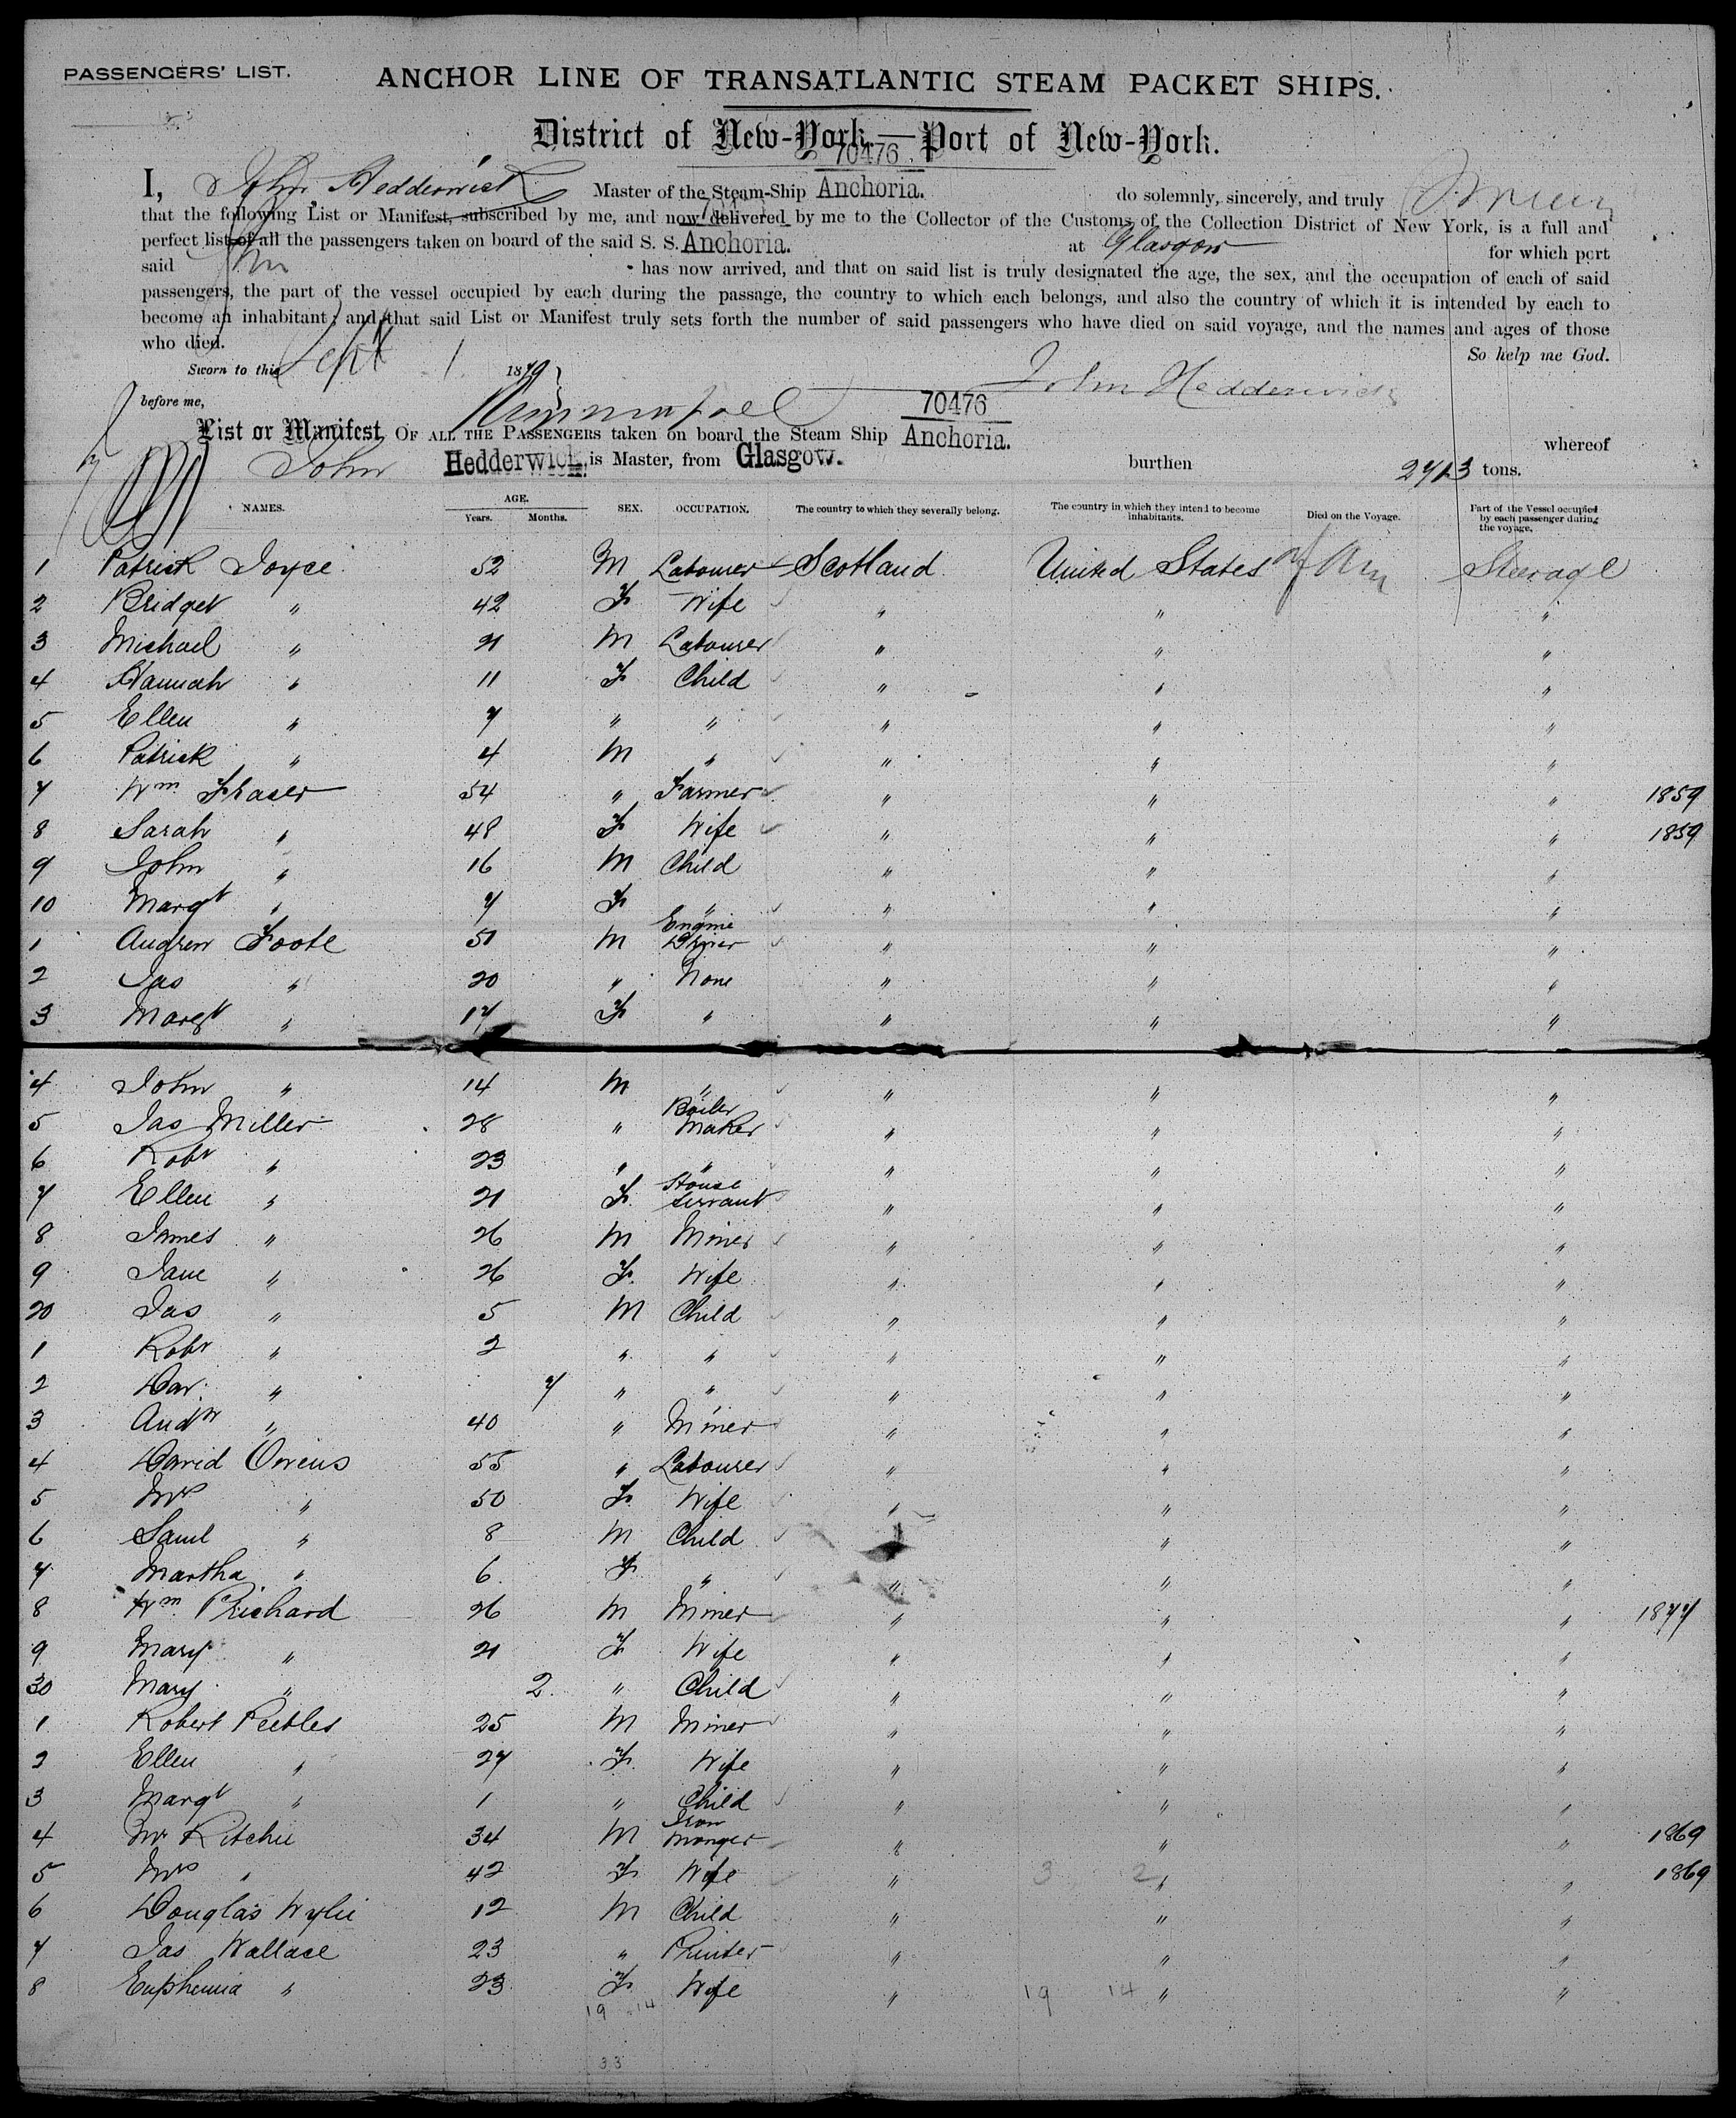 PASSENGERS' LIST.
ANCHOR LINE OF TRANSATLANTIC STEAM PACKET SHIPS.
District of New-York—Port of New-York.
70476
I, John Hedderwick Master of the Steam-Ship Anchoria. do solemnly, sincerely, and truly
that the following List or Manifest, subscribed by me, and now delivered by me to the Collector of the Customs of the Collection District of New York, is a full and
perfect list of all the passengers taken on board of the said S. S. Anchoria. at Glasgow for which port
said has now arrived, and that on said list is truly designated the age, the sex, and the occupation of each of said
passengers, the part of the vessel occupied by each during the passage, the country to which each belongs, and also the country of which it is intended by each to
become an inhabitant; and that said List or Manifest truly sets forth the number of said passengers who have died on said voyage, and the names and ages of those
who died.
So help me God.
Sworn to this Sept 1 1879
John Hedderwick
before me,
70476
List or Manifest OF ALL THE PASSENGERS taken on board the Steam Ship Anchoria. whereof
John Hedderwick is Master, from Glasgow. burthen 2713 tons.
NAMES. AGE. Years. Months. SEX. OCCUPATION. The country to which they severally belong. The country in which they intend to become inhabitants. Died on the Voyage. Part of the Vessel occupied by each passenger during the voyage.
1 Patrick Joyce 52 M Labourer Scotland United States of Am Steerage
2 Bridget " 42 F Wife " " "
3 Michael " 21 M Labourer " " "
4 Hannah " 11 F Child " " "
5 Ellen " 7 " " " " "
6 Patrick " 4 M " " " "
7 Wm Fraser 54 " Farmer " " " 1859
8 Sarah " 48 F Wife " " " 1859
9 John " 16 M Child " " "
10 Margt " 7 F " " " "
1 Andrew Foote 51 M Engine Driver " " "
2 Jas " 20 " None " " "
3 Margt " 17 F " " " "
4 John " 14 M " " " "
5 Jas Miller 28 " Boiler Maker " " "
6 Robt " 23 " " " " "
7 Ellen " 21 F House Servant " " "
8 James " 26 M Miner " " "
9 Jane " 26 F Wife " " "
20 Jas " 5 M Child " " "
1 Robt " 2 " " " " "
2 Dav. " 7 " " " " "
3 Andw " 40 " Miner " " "
4 David Owens 55 " Labourer " " "
5 Mrs " 50 F Wife " " "
6 Saml " 8 M Child " " "
7 Martha " 6 F " " " "
8 Wm Prichard 26 M Miner " " " 1877
9 Mary " 21 F Wife " " "
30 Mary " 2 " Child " " "
1 Robert Peebles 25 M Miner " " "
2 Ellen " 27 F Wife " " "
3 Margt " 1 " Child " " "
4 Mr Ritchie 34 M Iron monger " " " 1869
5 Mrs " 42 F Wife " 3 2 " " 1869
6 Douglas Wylie 12 M Child " " "
7 Jas Wallace 23 " Printer " " "
8 Euphemia " 23 F Wife " 19 14 " "
19 14
33